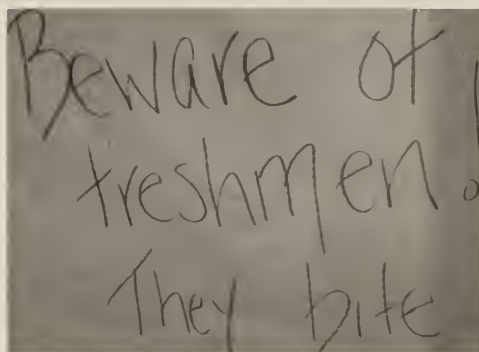 Beware of
freshmen!
They bite